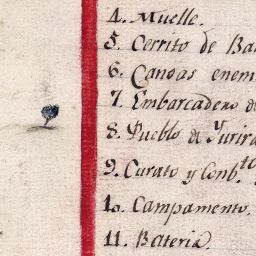 4. Muelle.
5. Cerrito de Ba
6. Canoas enem
7. Embarcadero d
8. Pueblo de Yurira
9. Curato y Conb.to
10. Campamento.
11. Bateria.